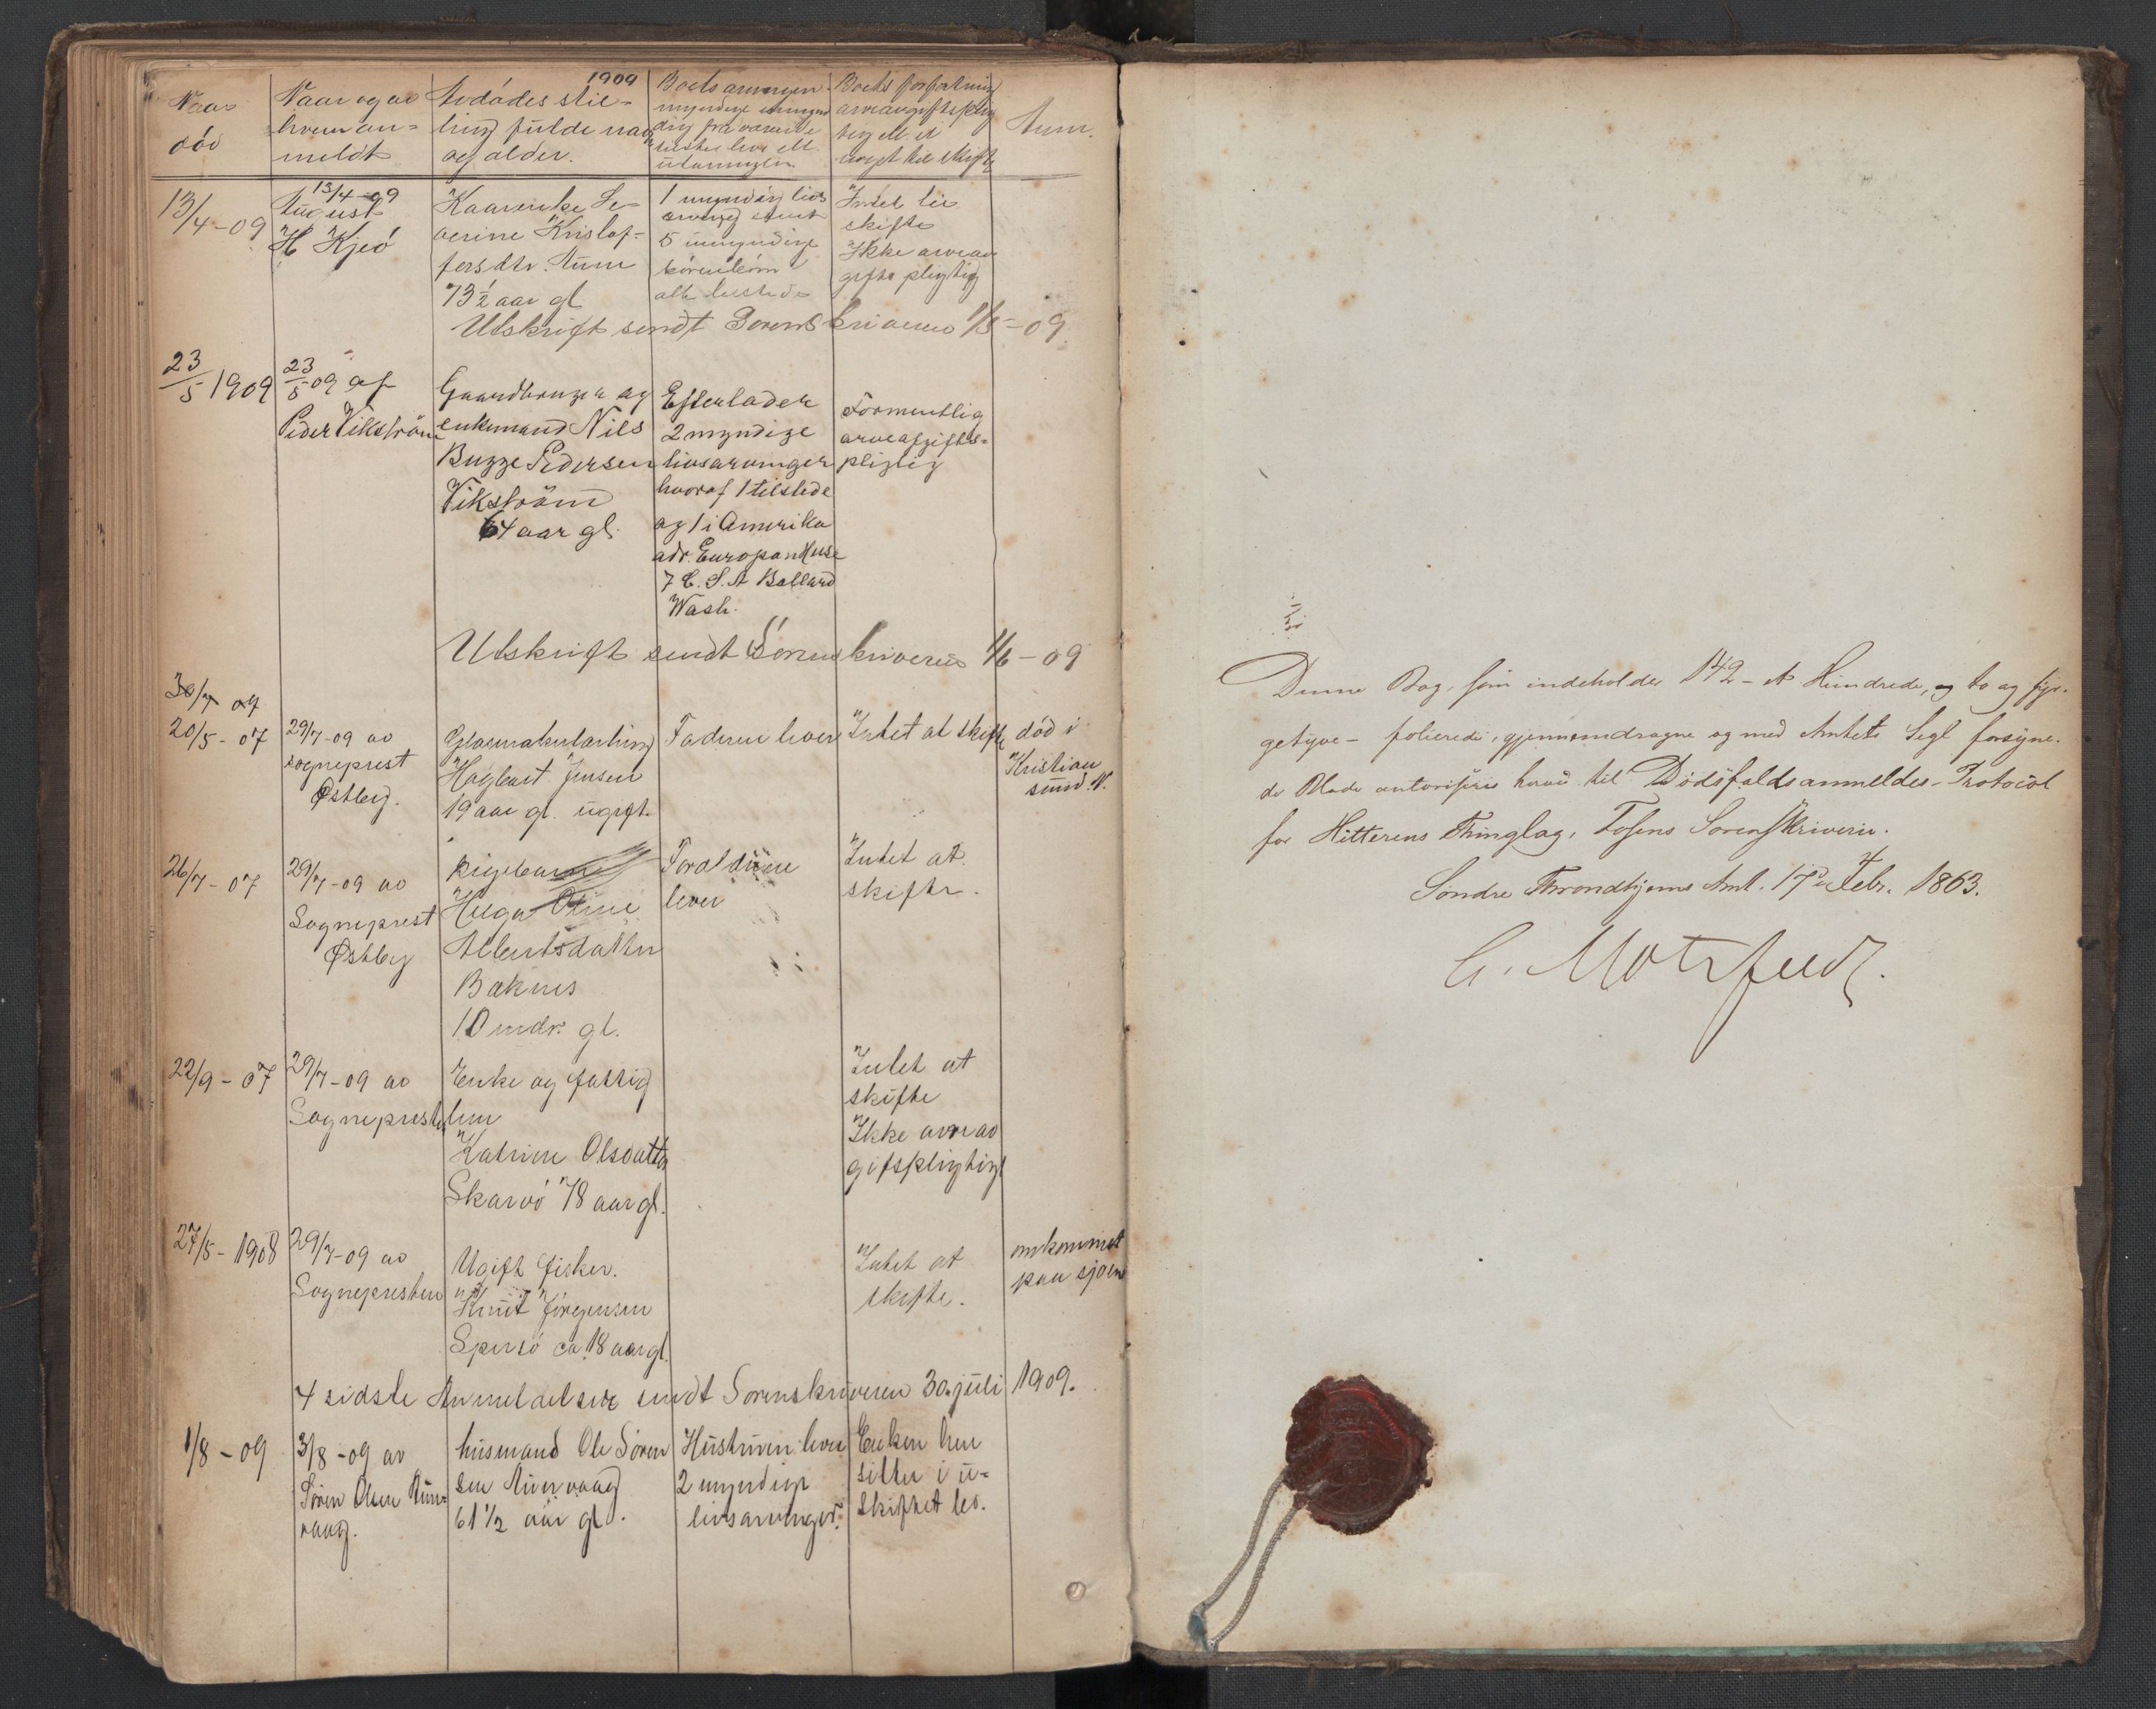 1909
Naar
død
Naar og av
hvem an=
meldt
Avdødes stil=
ling fulde navn
og alder.
Boets arvinger
myndige umyn
dig fraværende
tilstede leve ell.
utarvinger
Boets forfatning
arveavgiftsplig
tig ell. ei
noget til skifte
Anm.
13/4-09
13/4-09
August
H. Kjeö
Kaarenke Se
verine Kristof=
fersdtr. Aune
73½ aar gl
1 myndig livs
arving samt
5 umyndige
börnebörn
alle tilstede
Intet til
skifte
Ikke arveav
gifts pligtig
Utskrift sendt Sorenskriveren 1/5-09
23/5 1909
23/5 09 af
Peder Vikström
Gaardbruger og
enkemand Nils
Bugge Pedersen
Vikström
64 aar gl.
Efterlader
2 myndige
livsarvinger
hvoraf 1 tilstede
og 1 i Amerika
adr. Europan Huse
7 C. S. A Ballard
Wash.
Formentlig
arveafgifts=
pligtig
Utskrift sendt Sorenskriveren 1/6-09
30/7 09
20/5-07
29/7-09 av
sogneprest
Østbeg.
Hagbart Jensen
19 aar gl. ugift.
Faderen lever
Intet at skifte
død i
Kristian
sund N.
26/7-07
29/7-09 av
Sogneprest
Østbeg
Pigebarn
Helga Oline
Albertsdatter
Baknes
10 mdr. gl.
Foraldrene
lever
Intet at
skifte.
22/9-07
29/7-09 av
Sogneprest
Enke og fattig
lem
Katrine Olsdatter
Skarvö 78 aar gl.
Intet at
skifte
Ikke arveav
giftspligtig
27/5-1908
29/7-09 av
Sognepresten
Ugift fisker.
Knut Jörgensen
ca 18 aar gl.
Intet at
skifte.
omkommet
paa sjöen
4 sidste Anmeldelser sendt Sorenskriveren 30. juli 1909.
1/8-09
3/8-09 av
Sören Olsen Aun=
vaag.
husmand Ole Sören
sen Aunvaag
61½ aar gl.
Hustruen lever
2 myndige
livsarvinger.
Enken hen
sitter i u=
skiftet bo.
Denne Bog, som indeholder 142 - et Hundrede, og to og fyr-
getyve - folierede, gjennemdragne og med Amtets Segl forsyne-
de Blade autoriseres herved til Dødsfaldsanmeldes-Protocol
for Hitterens Thinglag, Fosens Sorenskriverie.
Søndre Throndhjems Amt. 17de Febr. 1863.
C. Motzfeldt.